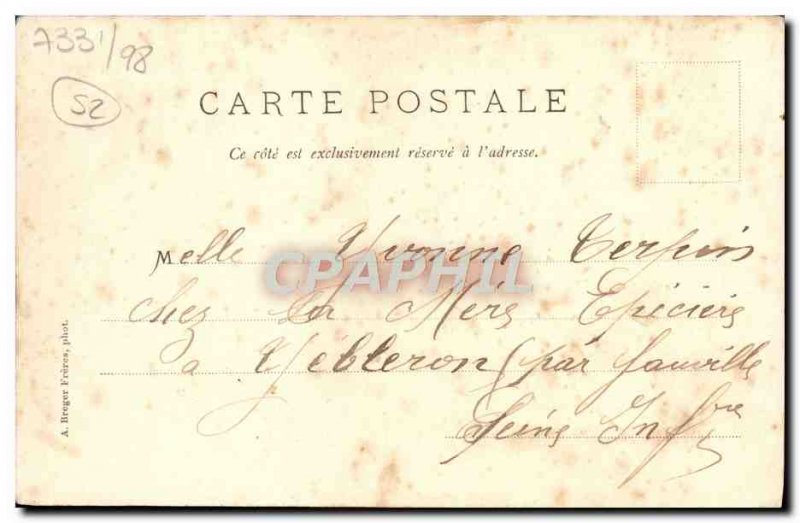 7331/98
52
CARTE POSTALE
Ce côté est exclusivement réservé à l'adresse.
Melle Yvonne Terpin
CPAPHIL
chez Sa Mère Epicière
a Yébleron (par fauville
Seine Infre
A. Breger Frères, phot.